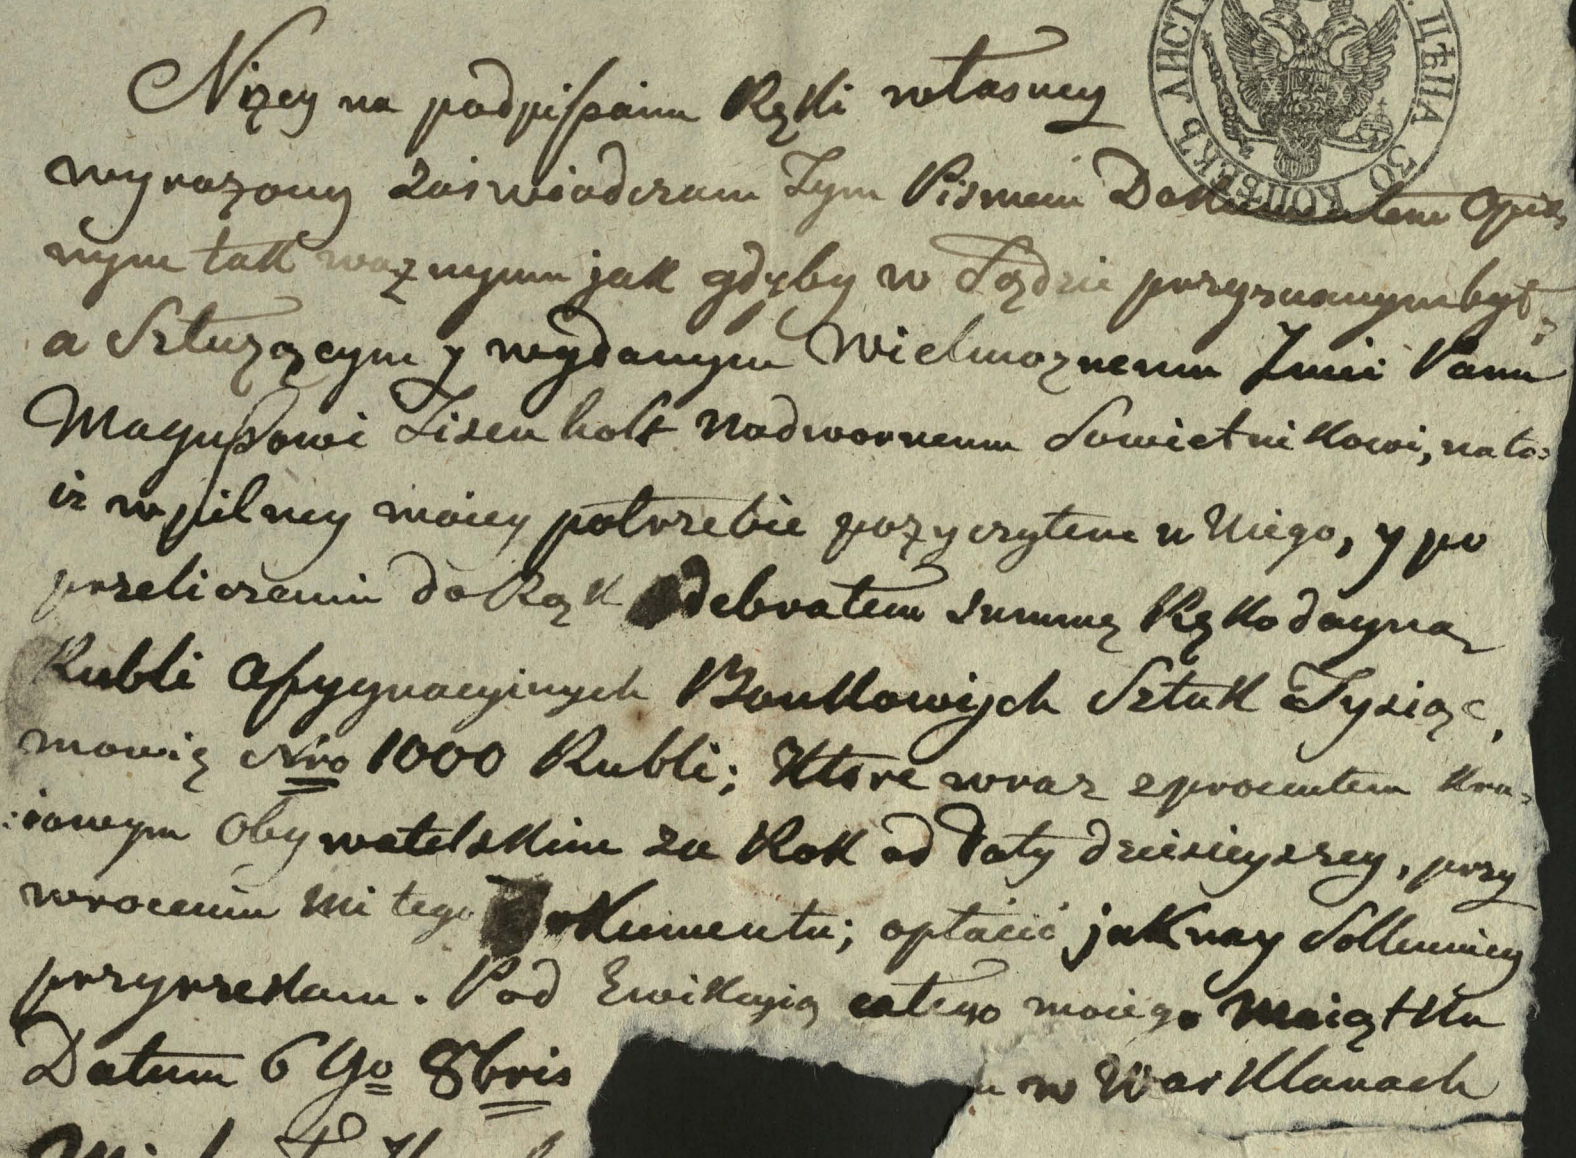 ЛИСТ ЦѢНА 50 КОПѢЕКЪ
Niżey na podpisaniu Ręki własney
wyrażony zaświadczam Tym Pismem Dokumentem Opis,
nym tak ważnymm jak gdyby w Sądzie przyznanym był,
a Szłużącym y wydanym Wielmożnemu Jmći Panu
Magnusowi Zisenholt Nadwornemu Sowietnikowi, na to:
iż w pilney moiey potrzebie pożyczyłem u Niego, y po
przeliczeniu do Rąk odebrałem summę Rękodayną
Rubli Assygnacyinych Bankowych Sztuk Tysiąc,
mowię Nro 1000 Rubli; Które wraz z procentem kra-
:iowym Obywatelskim za Rok od Daty dzisieyszey, przy
wroceniu mi tego Dokumentu; opłacić jak nay Sollenniey
przyrzekam. Pod Ewikcyią całego moiego Maiątku
Datum 6 go 8bris w Warklanach